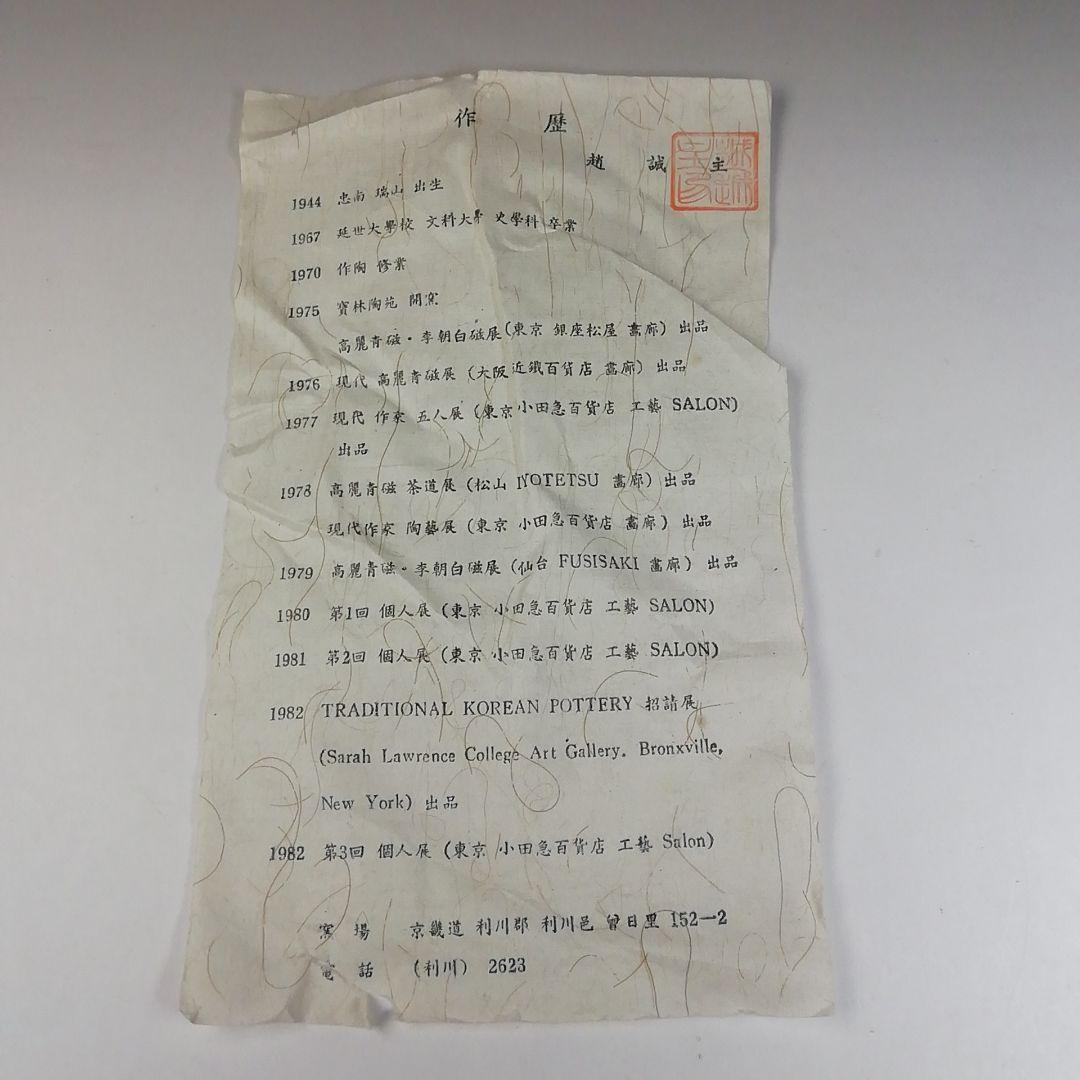 作 歷
趙 誠 主
1944 忠南 瑞山 出生
1967 延世大學校 文科大學 史學科 卒業
1970 作陶 修業
1975 寶林陶苑 開窯
高麗青磁・李朝白磁展(東京 銀座松屋 畵廊) 出品
1976 現代 高麗青磁展 (大阪近鐵百貨店 畵廊) 出品
1977 現代 作家 五人展 (東京小田急百貨店 工藝 SALON)
出品
1978 高麗青磁 茶道展 (松山 IYOTETSU 畵廊) 出品
現代作家 陶藝展 (東京 小田急百貨店 畵廊) 出品
1979 高麗青磁・李朝白磁展 (仙台 FUSISAKI 畵廊) 出品
1980 第1回 個人展 (東京 小田急百貨店 工藝 SALON)
1981 第2回 個人展 (東京 小田急百貨店 工藝 SALON)
1982 TRADITIONAL KOREAN POTTERY 招請展
(Sarah Lawrence College Art Gallery. Bronxville,
New York) 出品
1982 第3回 個人展 (東京 小田急百貨店 工藝 Salon)
窯 場 京畿道 利川郡 利川邑 曾日里 152—2
電 話 (利川) 2623